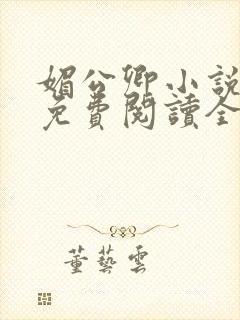 媚公卿小說
免費閱讀全
董藝雲